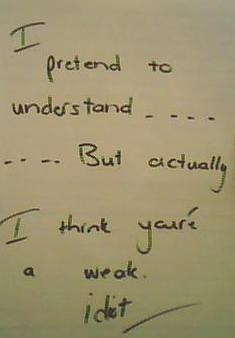 I
pretend to
understand ....
.... But actually
I think you're
a weak.
idiot